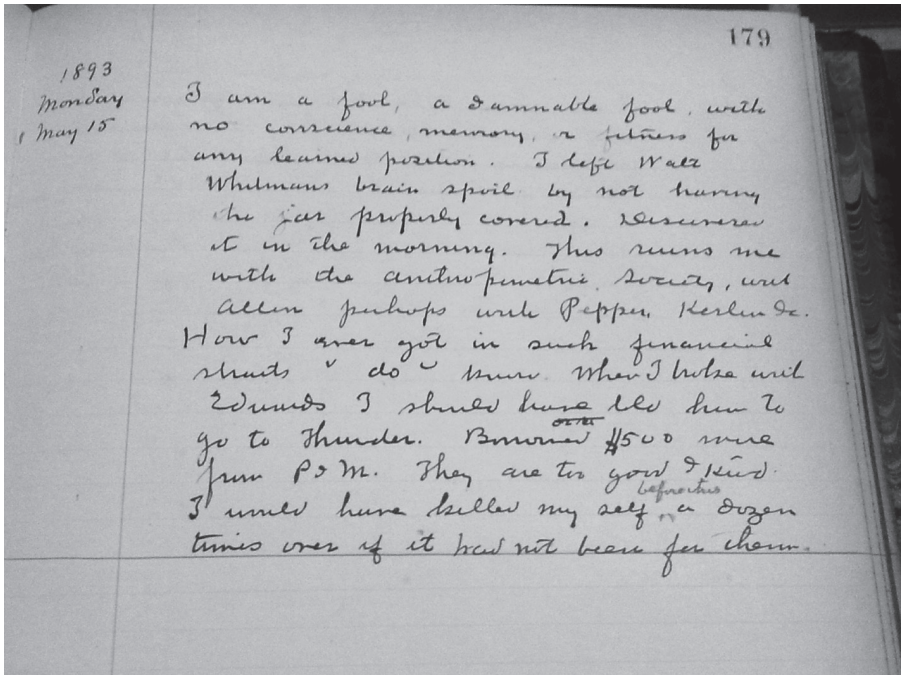 179
1893
Monday
May 15
I am a fool, a damnable fool, with
no conscience, memory, or fitness for
any learned position. I left Walt
Whitmans brain spoil by not having
the jar properly covered. Discovered
it in the morning. This ruins me
with the Anthropometric Society, and
Allen perhaps with Pepper, Kerlin &c.
How I ever got in such financial
straits " do " know. When I broke with
Edwards I should have told him to
go to Thunder. Borrowed $500 more
from P & M. They are too good & kind.
before this
I would have killed my self a dozen
times over if it had not been for them.